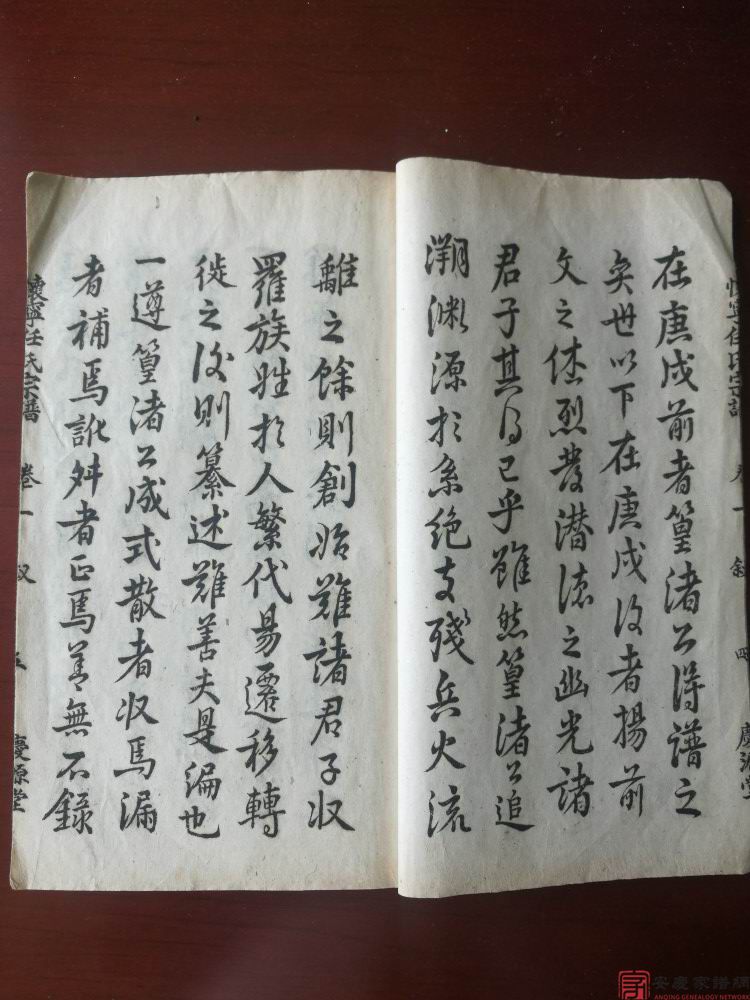 懷寧任氏宗譜 卷一 敘 四 慶源堂
在庚戌前者篁渚公得譜之
奕世以下在庚戌後者揚前
文之休烈發潛德之幽光諸
君子其得已乎雖然篁渚公追
溯淵源於系絕支殘兵火流
離之餘則創始難諸君子收
羅族姓於人繁代易遷移轉
徙之後則纂述難善夫是編也
一遵篁渚公成式散者收焉漏
者補焉訛舛者正焉善無不錄
懷寧任氏宗譜 卷一 叙 五 慶源堂
安慶家譜網
ANQING GENEALOGY NETWORK